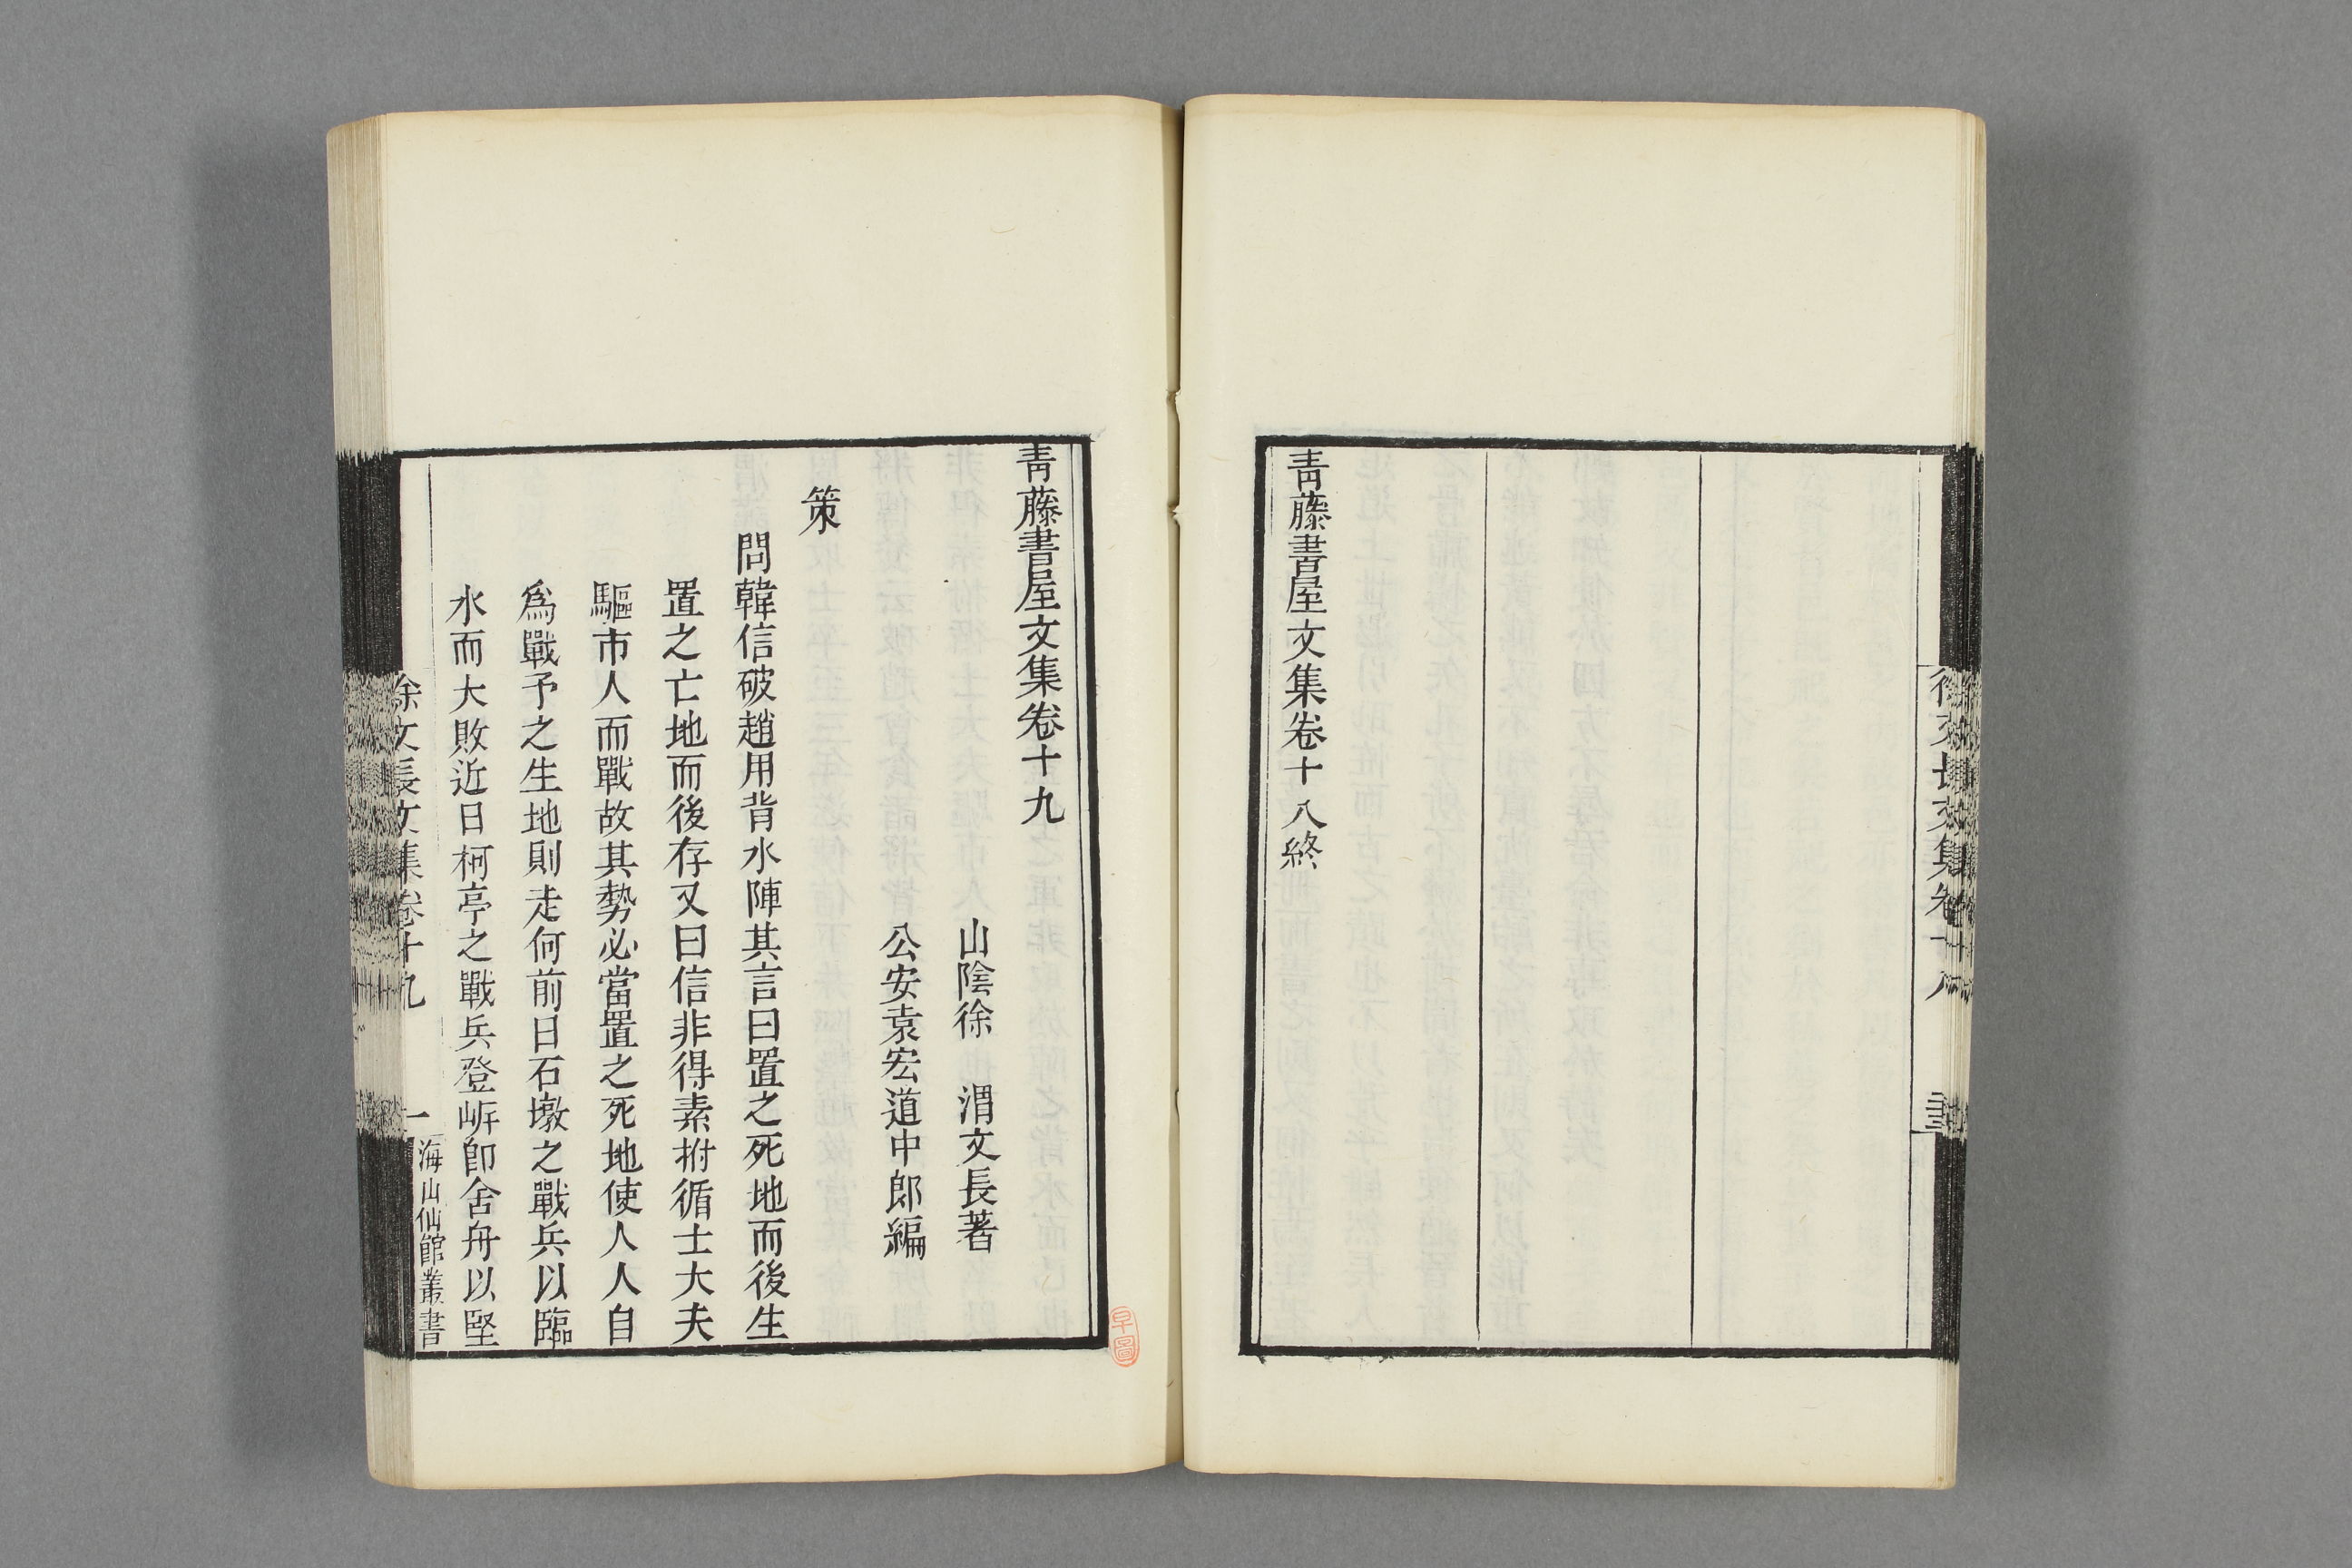 青藤書屋文集卷十八終
青藤書屋文集卷十九
山陰徐　渭文長著
公安袁宏道中郎編
策
問韓信破趙用背水陣其言曰置之死地而後生
置之亡地而後存又曰信非得素拊循士大夫
驅市人而戰故其勢必當置之死地使人人自
爲戰予之生地則走何前日石墩之戰兵以臨
水而大敗近日柯亭之戰兵登㟁卽舍舟以堅
徐文長文集卷十九
一
海山仙館叢書
早圖